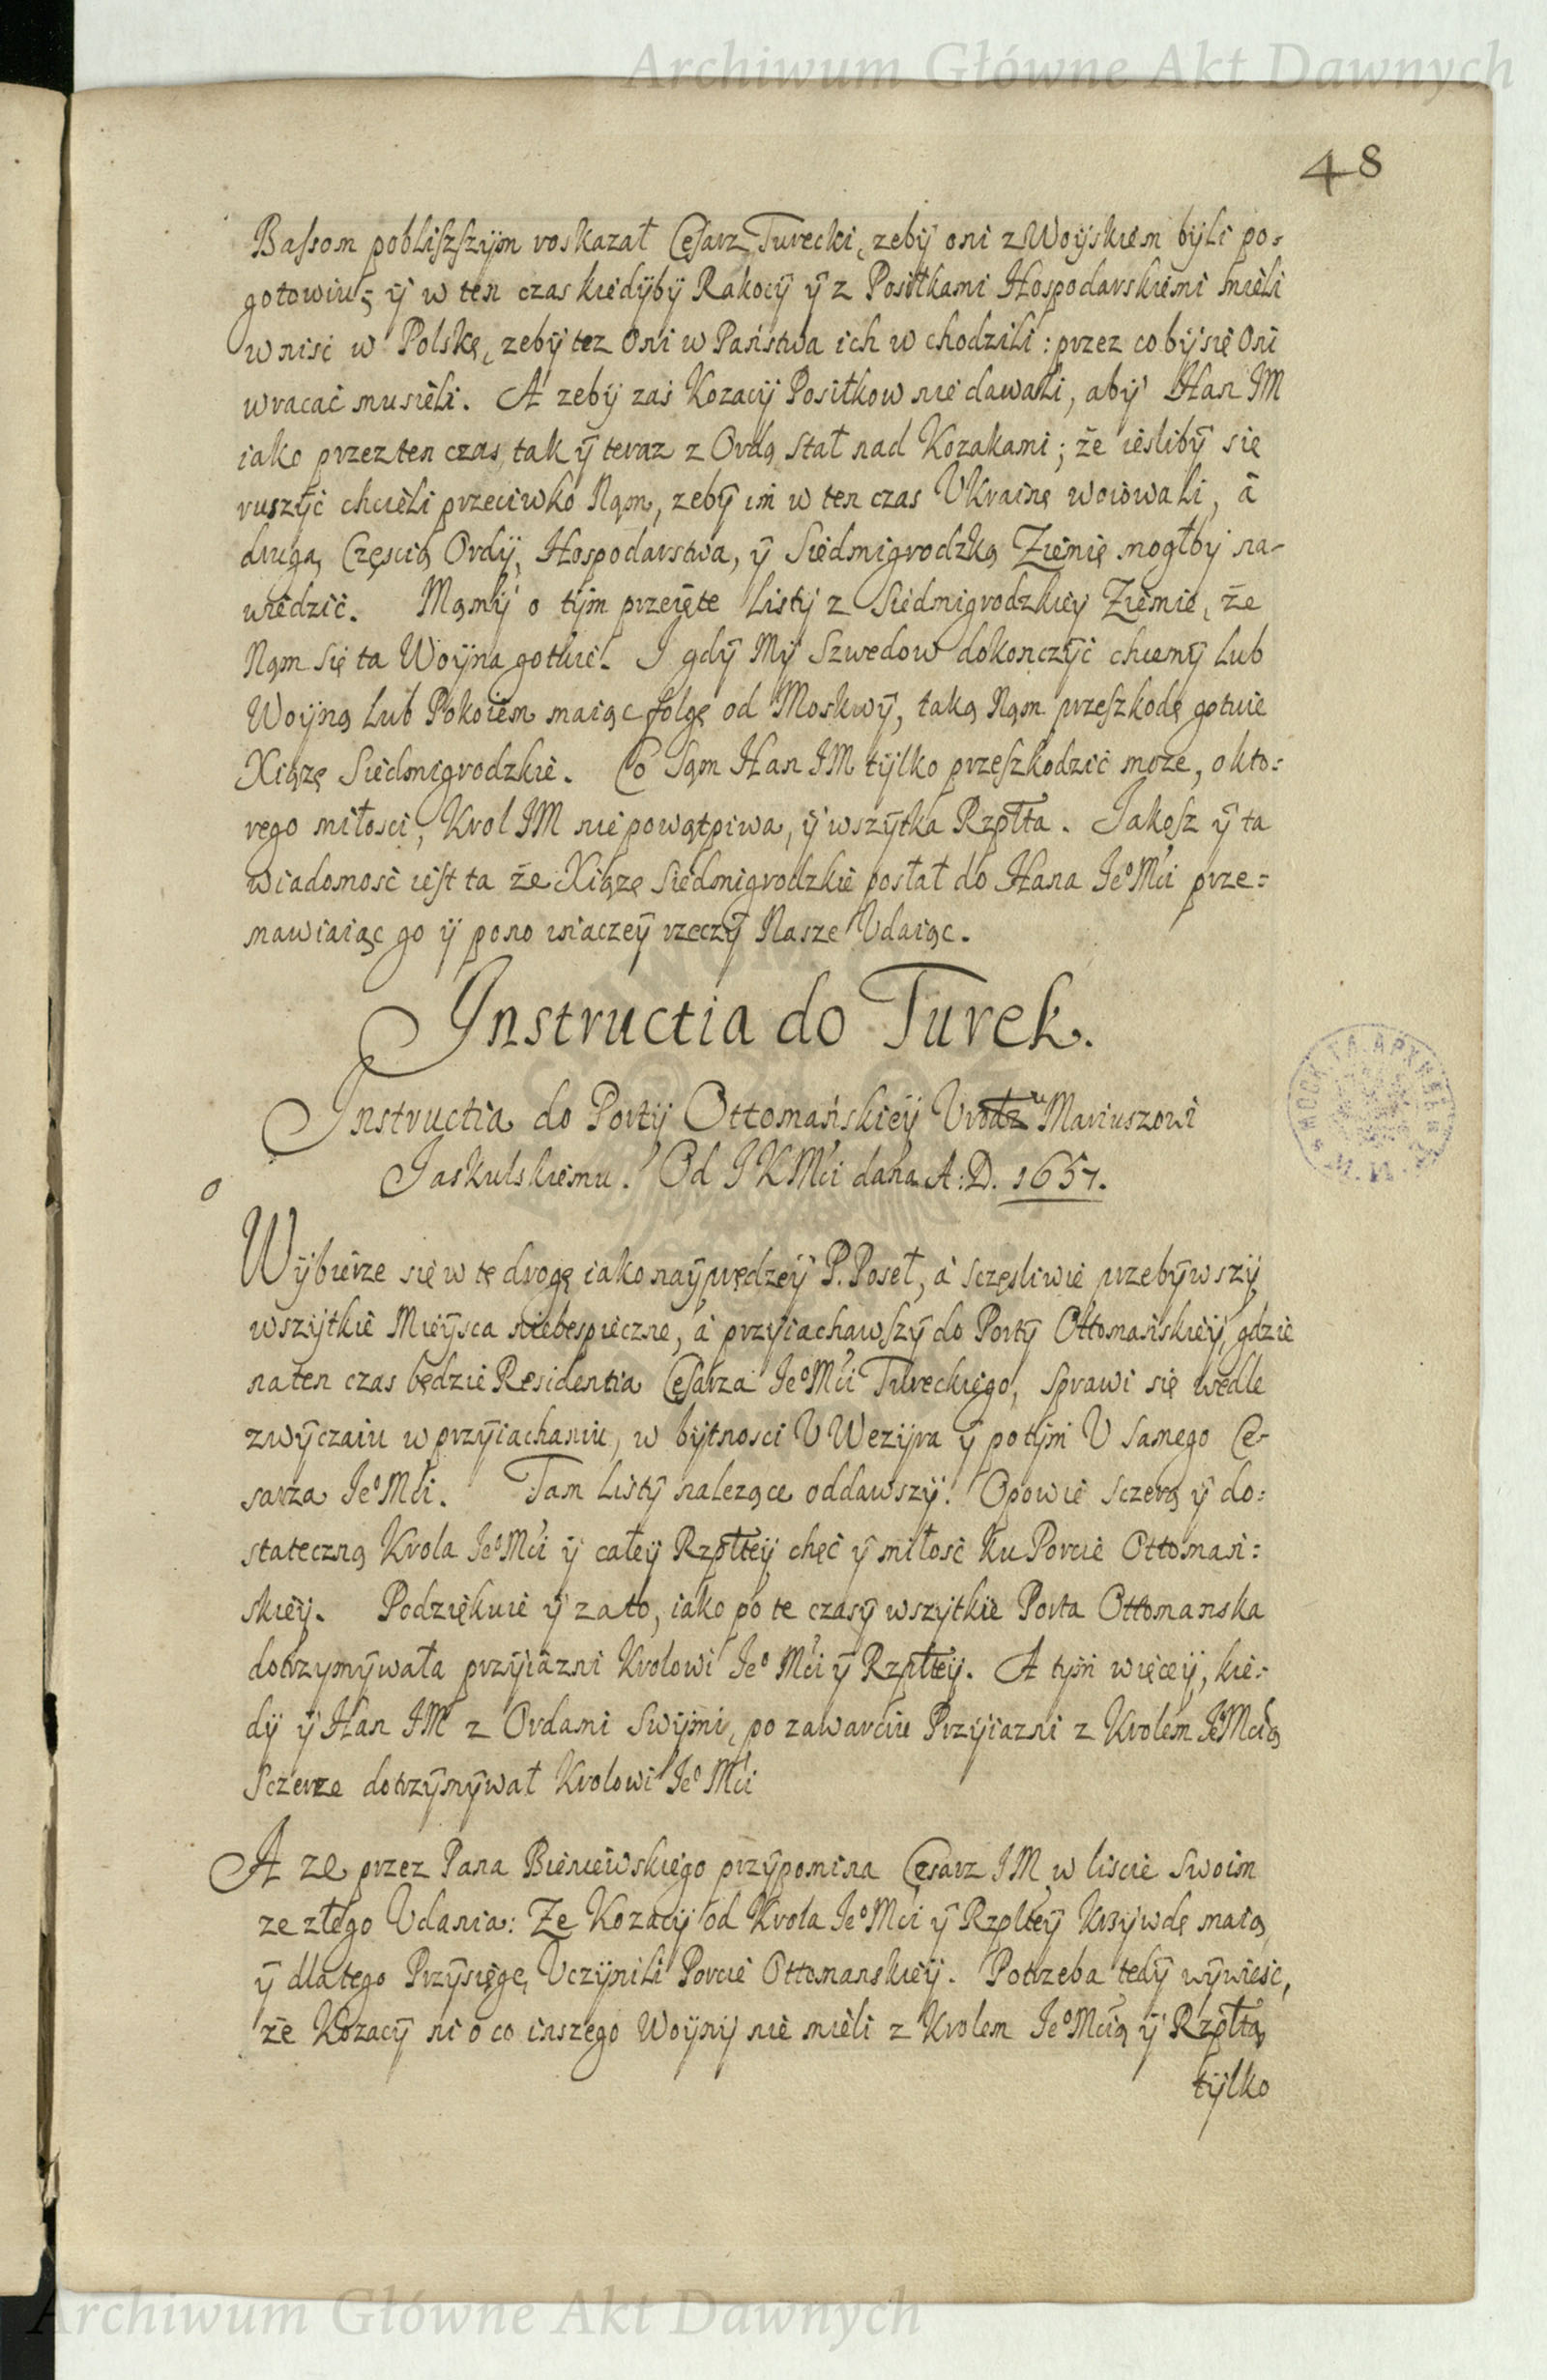 Archiwum Główne Akt Dawnych
48
Bassom pobliszszym roskazał Cesarz Turecki, zeby oni z Woyskiem byli po=
gotowiu; y w ten czas kiedyby Rakocy y z Posiłkami Hospodarskiemi mieli
wnisc w Polskę, zeby tez Oni w Państwa ich wchodzili: przez coby się Oni
wracać musieli. A zeby zaś Kozacy Posiłkow nie dawali, aby Han JM
iako przez ten czas, tak y teraz z Ordą stał nad Kozakami; że iesliby się
ruszyć chcieli przeciwko Nąm, zeby im w ten czas Ukrainę woiowali, á
drugą Częscią Ordy, Hospodarstwa, y Siedmigrodzką Ziemię mogłby na-
wiedzić. Mąmy o tym przeięte Listy z Siedmigrodzkiey Ziemie, że
Nąm się ta Woyna gotuie. I gdy My Szwedow dokonczyć chcemy Lub
Woyną Lub Pokoiem maiąc folgę od Moskwy, taką Nąm przeszkodę gotuie
Xiążę Siedmigrodzkie. Co Sąm Han JM tylko przeszkodzić moze, o kto=
rego miłosci, Krol JM nie powątpiwa, y wszytka Rzplta. Jakosz y ta
wiadomosc iest ta że Xiążę Siedmigrodzkie posłał do Hana Jeo Mći prze=
mawiaiąc go y pono inaczey rzeczy Nasze Udaiąc.
Ynstructia do Turek.
Instructia do Porty Ottomańskiey Urodzu Mariuszowi
Jaskulskiemu. Od J K Mći dana A: D. 1657.
Wybierze się w tę drogę iako nayprędzey P. Poseł, á sczęsliwie przebywszy
wszytkie Mieysca niebespieczne, á przyiachawszy do Porty Ottomańskiey, gdzie
na ten czas będzie Residentia Cesarza Jeo Mći Tureckiego, Sprawi się wedle
zwyczaiu w przyiachaniu, w bytnosci U Wezyra y potym U Samego Ce-
sarza Jeo Mći. Tam Listy nalezące oddawszy. Opowie Sczerą y do=
stateczną Krola Jeo Mći y całey Rzpltey chęć y miłosć ku Porcie Ottomań=
skiey. Podziękuie y za to, iako po te czasy wszytkie Porta Ottomanska
dotrzymywała przyiazni Krolowi Jeo Mći y Rzpltey. A tym więcey, kie=
dy y Han JM z Ordami Swymi, po zawarciu Przyiazni z Krolem JeMcią
Sczerze dotrzymywał Krolowi Jeo Mći
A ze przez Pana Bieniewskiego przypomina Cesarz JM w liscie Swoim
ze złego Udania: Ze Kozacy od Krola Jeo Mći y Rzpltey Krzywdę maią,
y dlatego Przysięgę Uczynili Porcie Ottomanskiey. Potrzeba tedy wywiesc,
że Kozacy ni o co inszego Woyny nie mieli z Krolem Jeo Mcią y Rzpltą
tylko
Archiwum Główne Akt Dawnych